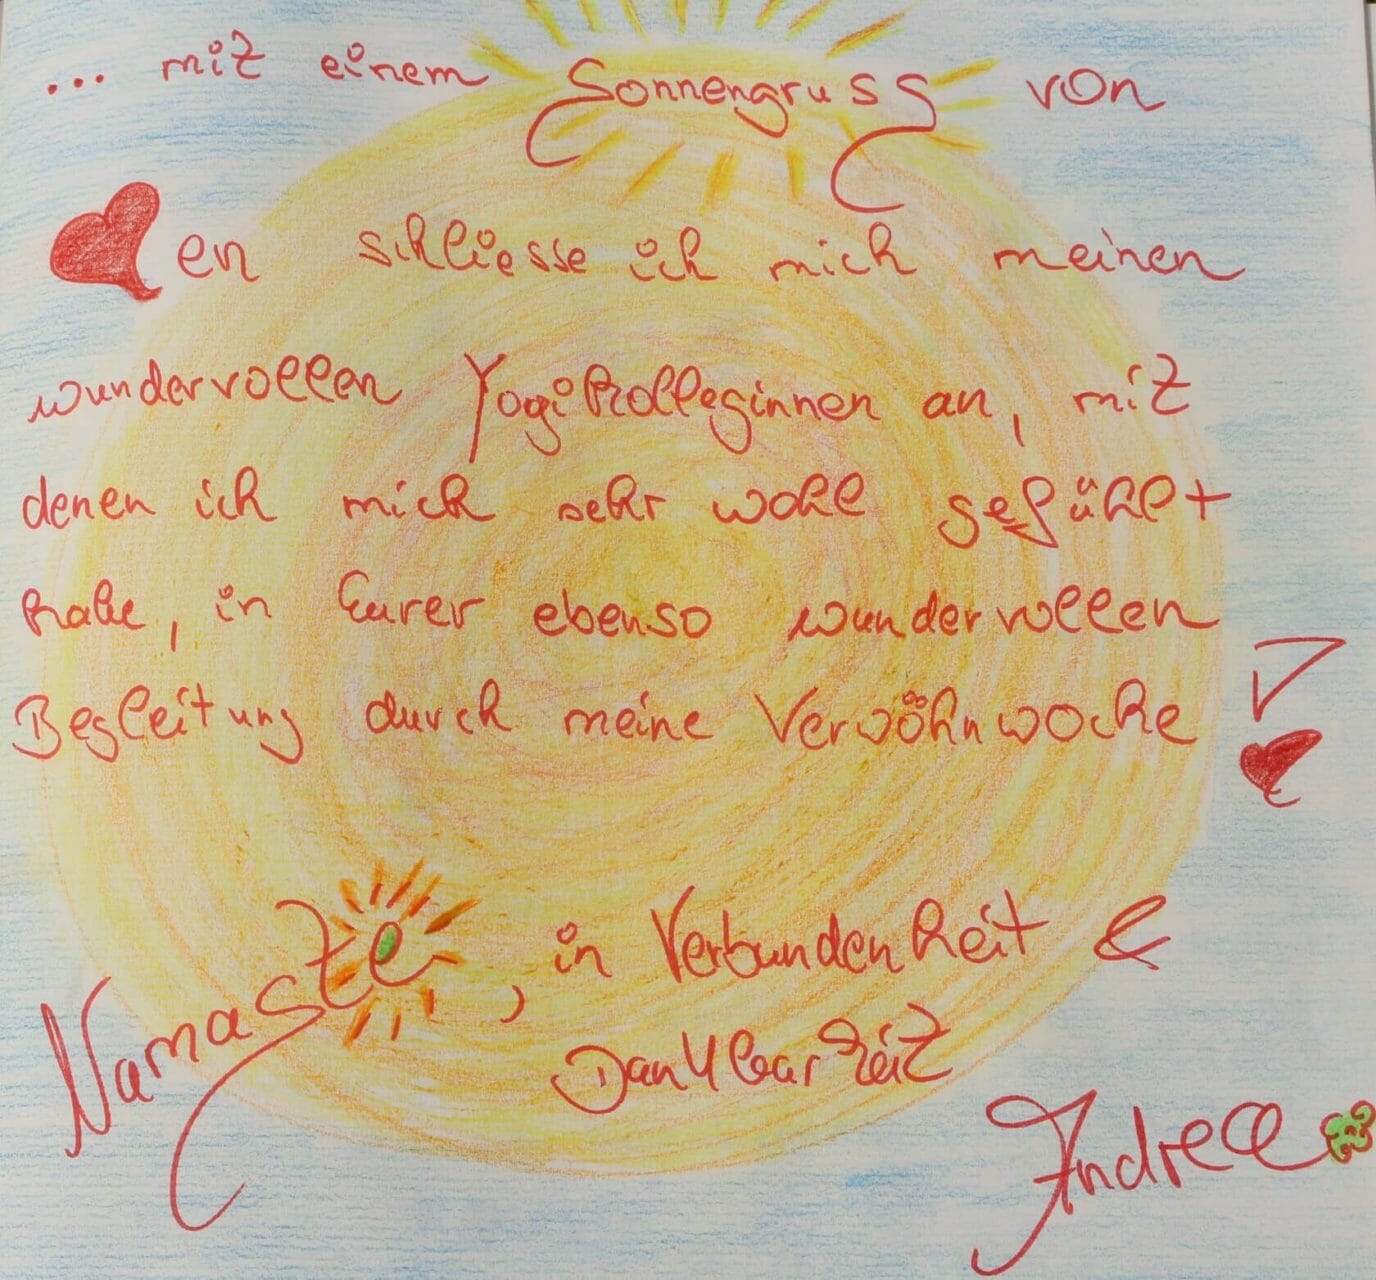 ... mit einem Sonnengruss von
❤en schliesse ich mich meinen
wundervollen Yogikolleginnen an, mit
denen ich mich sehr wohl gefühlt
habe, in Eurer ebenso wundervollen
Begleitung durch meine Verwöhnwoche !
Namaste, in Verbundenheit &
Dankbarkeit
Andrea